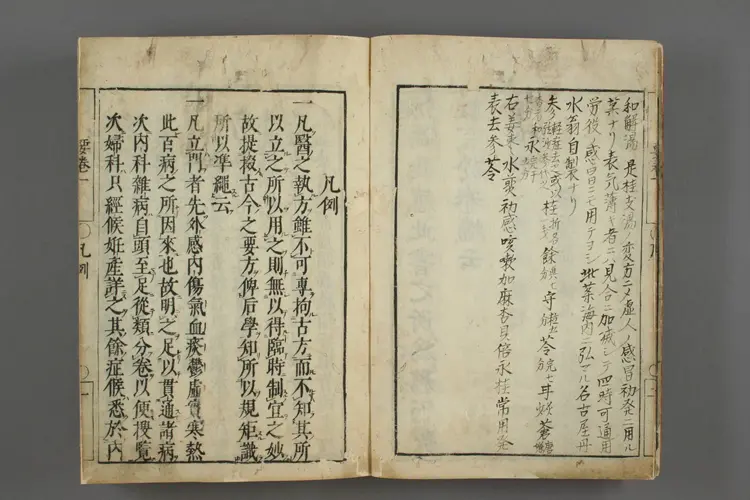 和解湯 是桂支湯ノ変方ニメ虚人ノ感冒初発ニ用ル
其ナリ表気薄キ者ニハ見合ニ加減シテ四時可通用
労役ノ感冒ニモ用テヨシ此薬海内ニ弘マル名古屋丹
水翁自製ナリ
右姜 水煎 初感咳嗽加麻杏貝倍永桂常用発
表去参苓
凡例
一凡醫之執方雖不可專拘古方而不知其所
以立之所以用之則無以得臨時制宜之妙
故提掇古今之要方俾后學知所以規矩識
所以準繩云
一凡立門者先外感内傷氣血痰鬱虛實寒熱
此百病之所因來也故明之足以貫通諸病
次内科雜病自頭至足從類分卷以便搜覧
次婦科只經候姙產詳之其餘症候悉於内
要卷一
凡例
一